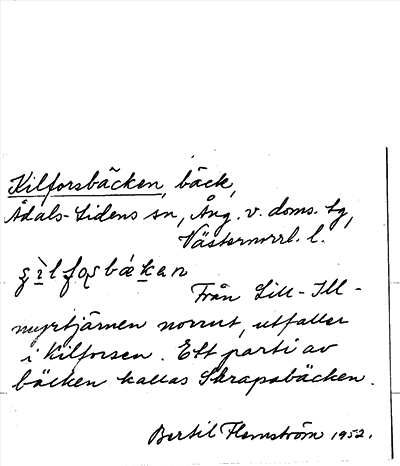 Kilforsbäcken, bäck,
Ådals-Lidens sn, Ång. v. doms. tg,
Västernorrl. l.
Från Lill-Ill-
myrtjärnen norrut, utfaller
i Kilforsen. Ett parti av
bäcken kallas Skrapabäcken.
Bertil Flemström 1952.